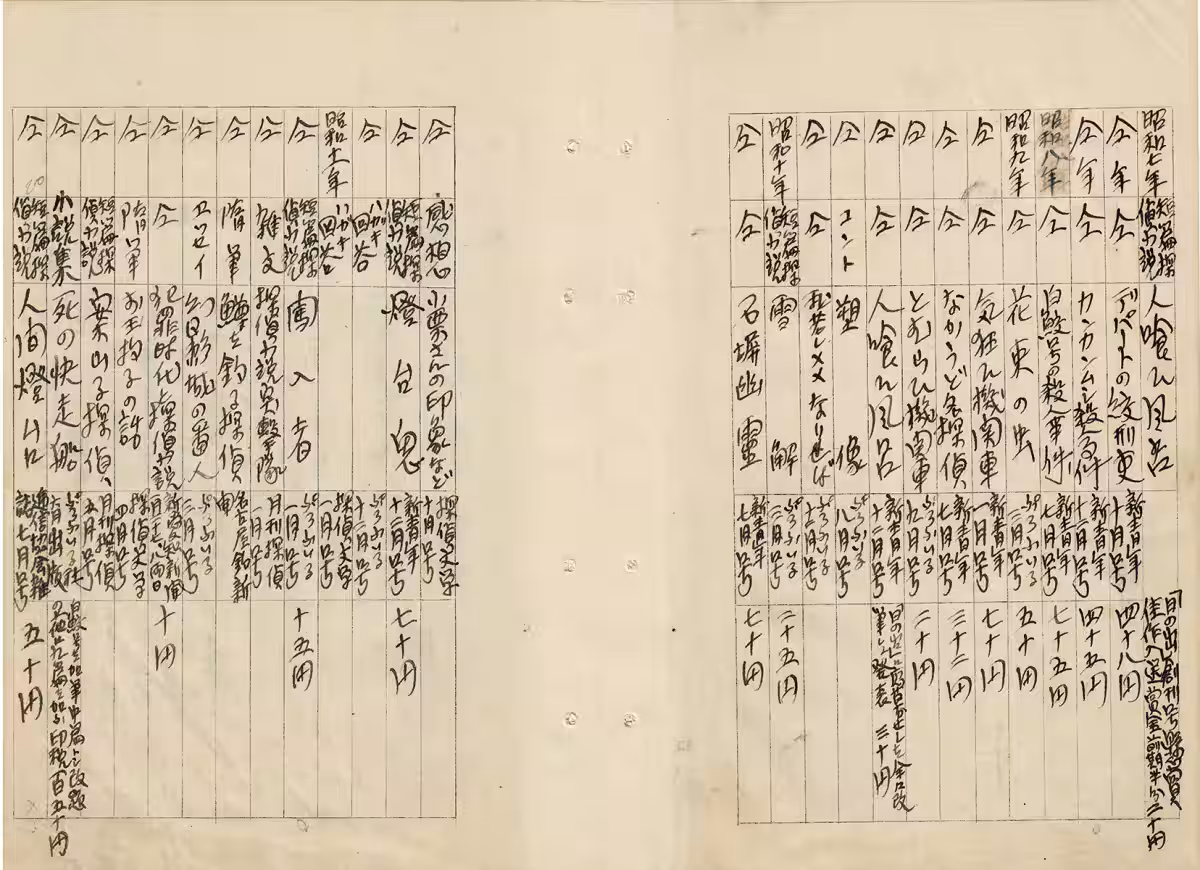 昭和七年 短篇探偵小説 人喰ひ風呂 「日の出」創刊号懸賞佳作入選賞金前期半分二十円
仝年 仝 デパートの絞刑吏 新青年十月号 四十八円
仝年 仝 カンカンムシ殺人事件 新青年十二月号 四十五円
昭和八年 仝 白鮫号の殺人事件 新青年七月号 七十五円
昭和九年 仝 花束の虫 ぷろふいる 五十円
仝 仝 気狂ひ機関車 新青年一月号 七十円
仝 仝 なかうど名探偵 新青年七月号 三十二円
仝 仝 とむらひ機関車 ぷろふいる九月号 二十円
仝 仝 人喰ひ風呂 新青年十二月号 日の出に 全部改筆して発表 三十円
仝 コント 塑像 ぷろふいる八月号
仝 仝 我若しメメなりせば ぷろふいる十二月号
昭和十年 短篇探偵小説 雪解 ぷろふいる三月号 二十五円
仝 仝 石塀幽霊 新青年七月号 七十円
仝 感想 小栗さんの印象など 探偵文学十月号
仝 短篇探偵小説 燈台鬼 新青年十二月号 七十円
仝 ハガキ回答 ぷろふいる十二月号
昭和十一年 ハガキ回答 探偵文学
仝 短篇探偵小説 闖入者 ぷろふいる一月号 十五円
仝 雑文 探偵小説突撃隊 月刊探偵一月号
仝 随筆 鱒を釣る探偵 名古屋新聞
仝 エッセイ 幻影城の番人 ぷろふいる三月号
仝 仝 犯罪時代と探偵小説 新愛知新聞 十円
仝 随筆 お玉杓子の話 探偵文学四月号
仝 短篇探偵小説 案山子探偵 月刊探偵五月号
仝 小説集 死の快走船 ぷろふいる社六月出版 白鮫号を加筆中篇とし改題 の他九篇を加ふ 印税百五十円
仝 短篇探偵小説 人間燈台 逓信協会雑誌七月号 五十円